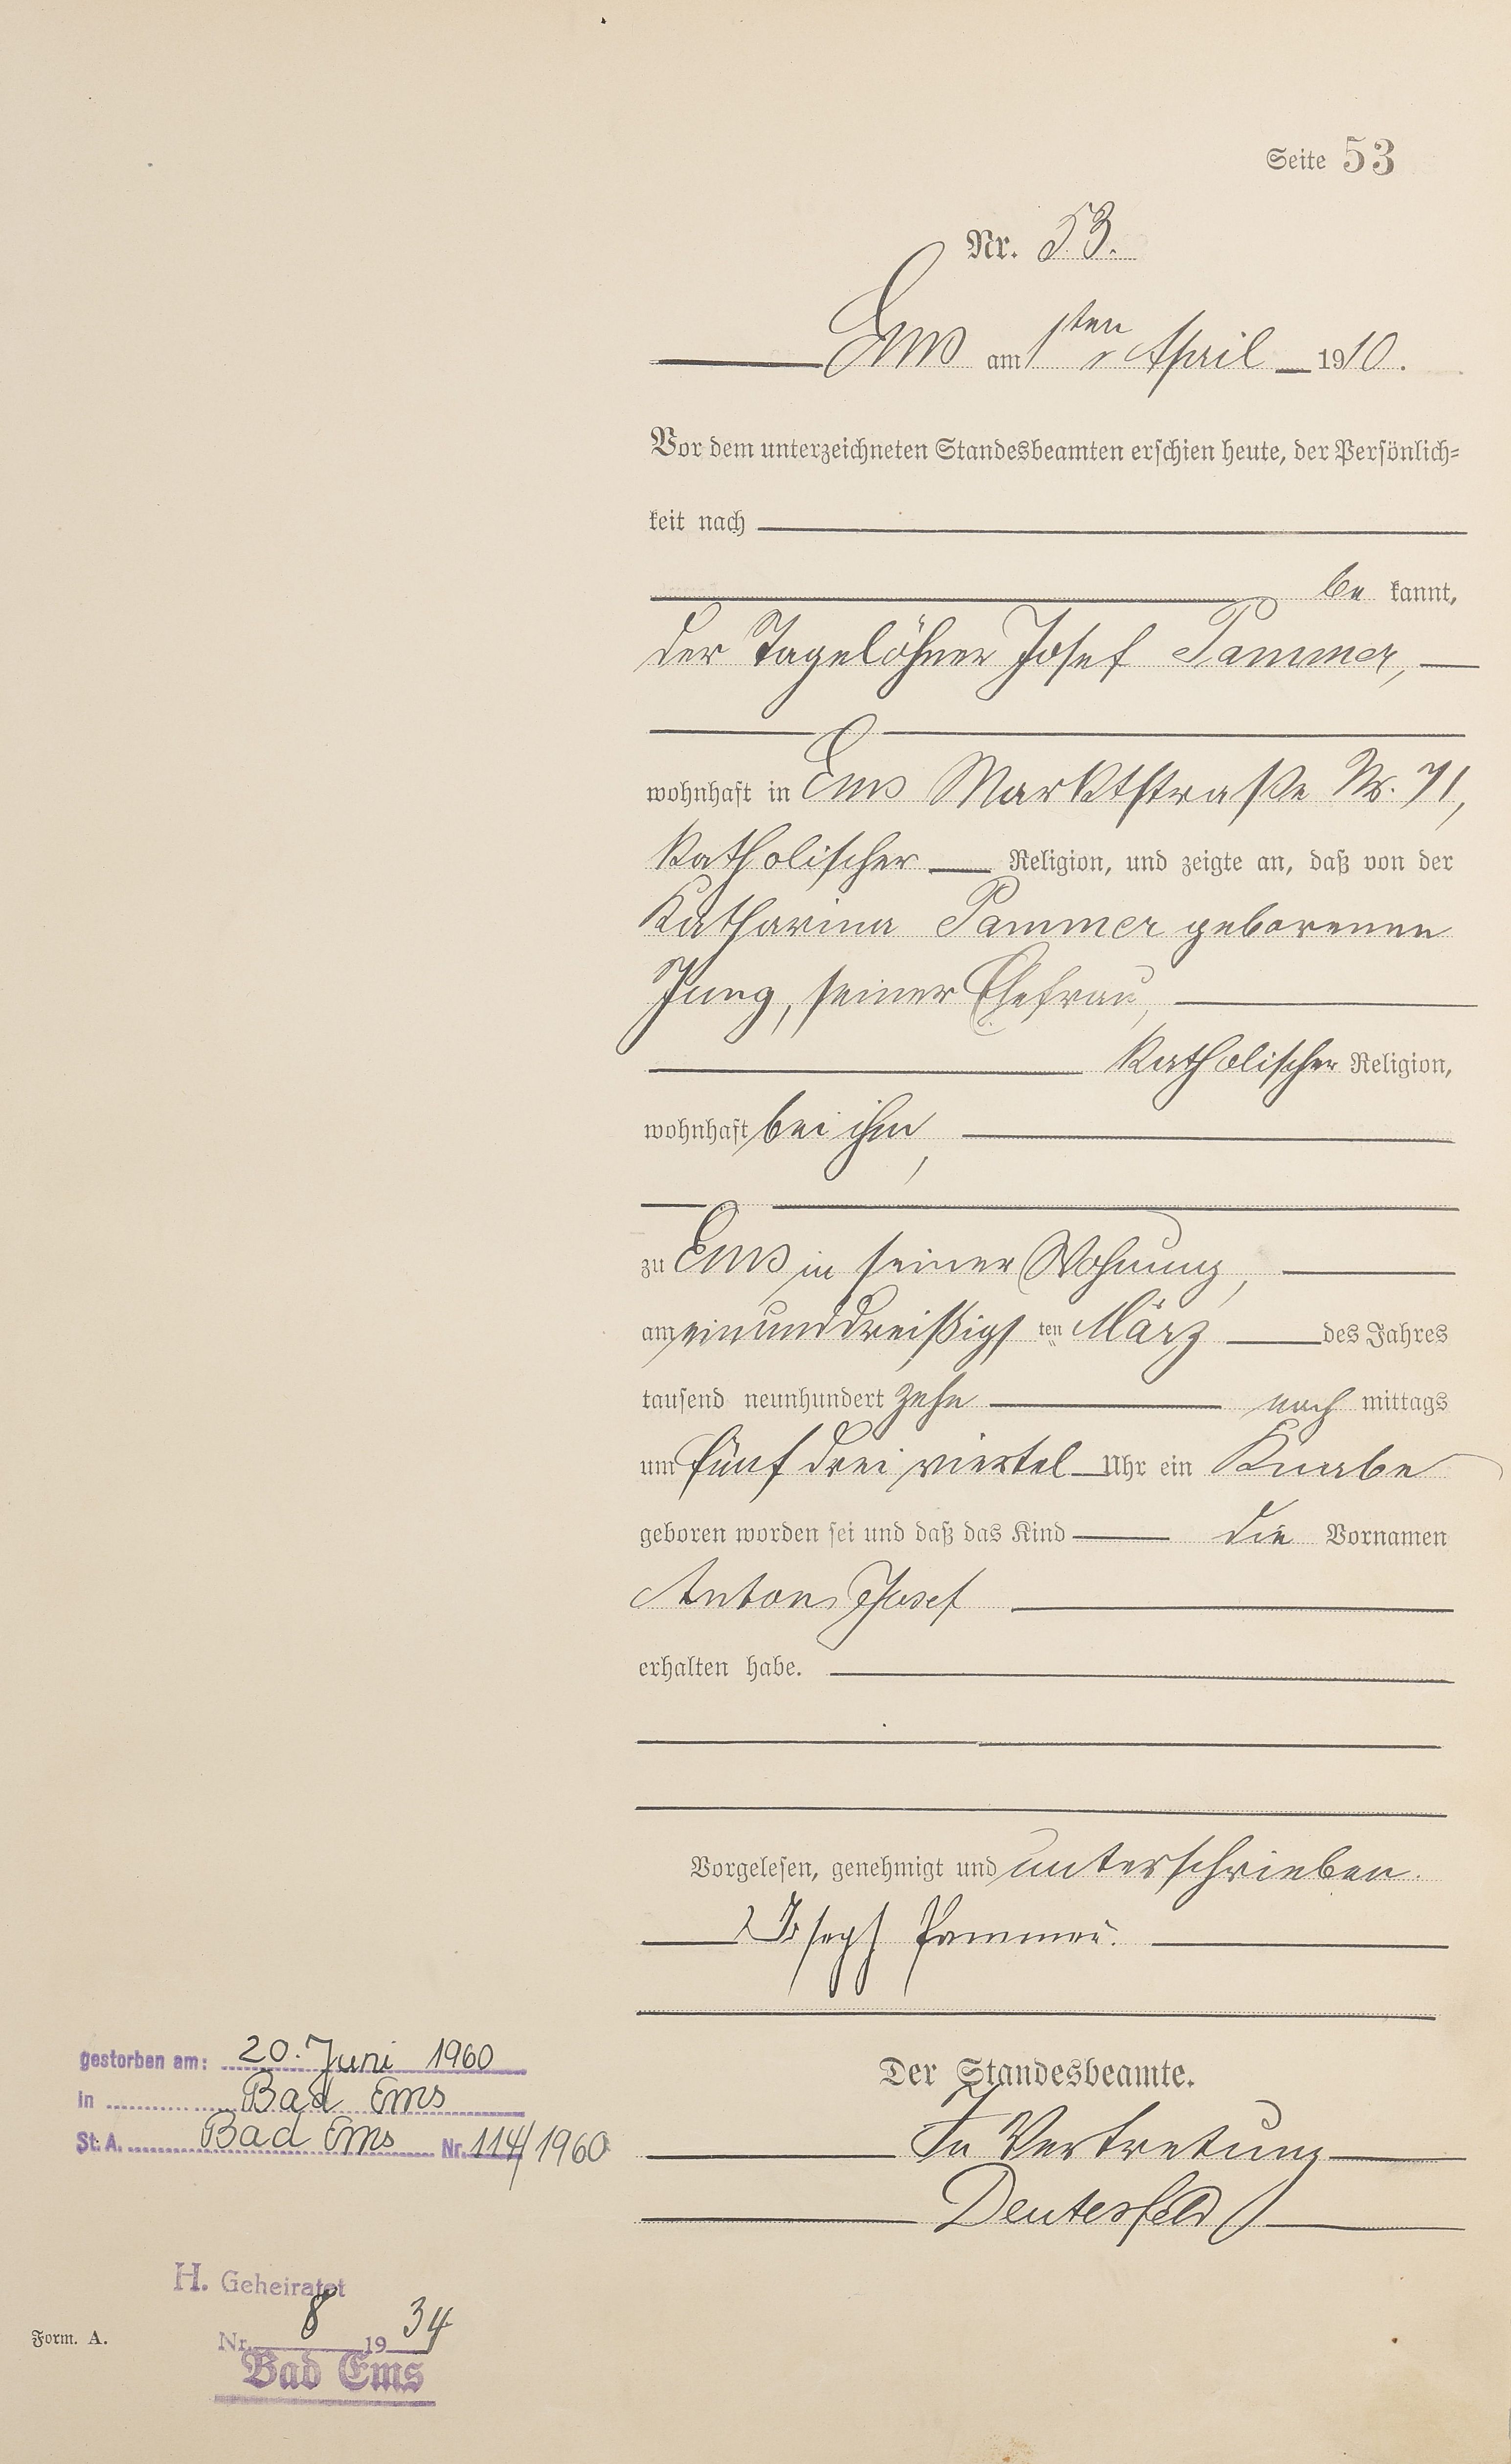 Seite 53
Nr. 53.
Ems am 1ten April 1910.
Vor dem unterzeichneten Standesbeamten erschien heute, der Persönlich-
keit nach
be kannt,
der Tagelöhner Josef Pammer,
wohnhaft in Ems Marktstraße Nr. 71,
katholischer Religion, und zeigte an, daß von der
Katharina Pammer geborenen
Jung, seiner Ehefrau,
katholischer Religion,
wohnhaft bei ihm,
zu Ems in seiner Wohnung,
am einunddreißigs ten März des Jahres
tausend neunhundert zehn nach mittags
um fünf drei viertel Uhr ein Knabe
geboren worden sei und daß das Kind die Vornamen
Anton Josef
erhalten habe.
Vorgelesen, genehmigt und unterschrieben.
Joseph Pammer.
Der Standesbeamte.
In Vertretung
Deutesfeld
gestorben am: 20. Juni 1960
in Bad Ems
St. A. Bad Ems Nr. 114/1960
H. Geheiratet
Nr. 8 1934
Bad Ems
Form. A.